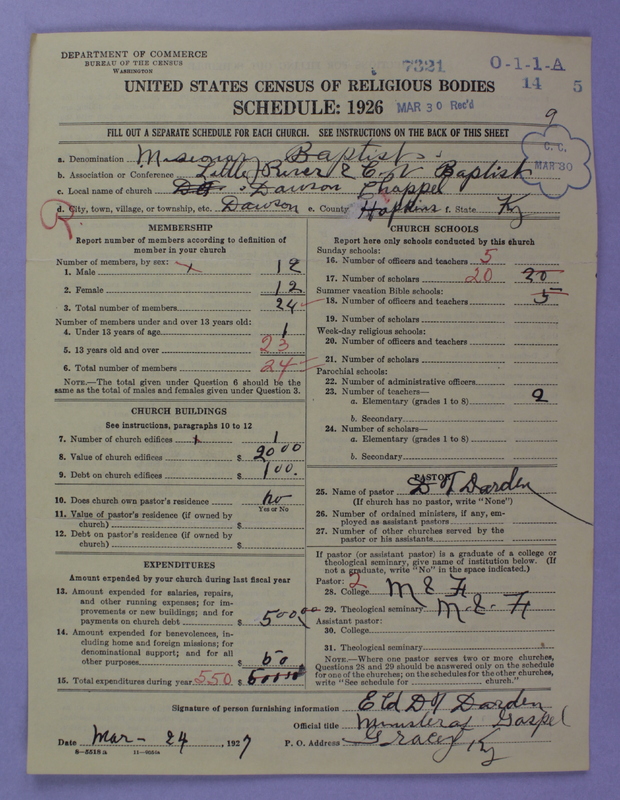 DEPARTMENT OF COMMERCE
BUREAU OF THE CENSUS
WASHINGTON
7321
O-1-1-A
14 5
UNITED STATES CENSUS OF RELIGIOUS BODIES
SCHEDULE: 1926 MAR 30 Rec'd
9
FILL OUT A SEPARATE SCHEDULE FOR EACH CHURCH. SEE INSTRUCTIONS ON THE BACK OF THIS SHEET
C. C.
MAR 30
a. Denomination Baptist
b. Association or Conference Little River & Baptist
c. Local name of church Dawson Chappel
R
d. City, town, village, or township, etc. Dawson e. County Hopkins f. State Ky
MEMBERSHIP
Report number of members according to definition of
member in your church
Number of members, by sex:
1. Male 12
2. Female 12
3. Total number of members 24
Number of members under and over 13 years old:
4. Under 13 years of age 1
5. 13 years old and over 23
6. Total number of members 24
NOTE.—The total given under Question 6 should be
the same as the total of males and females given under Question 3.
CHURCH BUILDINGS
See instructions, paragraphs 10 to 12
7. Number of church edifices 1
8. Value of church edifices $ 2000
9. Debt on church edifices $ 100.
10. Does church own pastor's residence no
Yes or No
11. Value of pastor's residence (if owned by
church) $
12. Debt on pastor's residence (if owned by
church) $
EXPENDITURES
Amount expended by your church during last fiscal year
13. Amount expended for salaries, repairs,
and other running expenses; for im-
provements or new buildings; and for
payments on church debt $ 500
14. Amount expended for benevolences, in-
cluding home and foreign missions; for
denominational support; and for all
other purposes $
15. Total expenditures during year 550 $
CHURCH SCHOOLS
Report here only schools conducted by this church
Sunday schools:
16. Number of officers and teachers 5
17. Number of scholars 20 20
Summer vacation Bible schools:
18. Number of officers and teachers 5
19. Number of scholars
Week-day religious schools:
20. Number of officers and teachers
21. Number of scholars
Parochial schools:
22. Number of administrative officers
23. Number of teachers—
a. Elementary (grades 1 to 8) 2
b. Secondary
24. Number of scholars—
a. Elementary (grades 1 to 8)
b. Secondary
PASTOR
25. Name of pastor D T Darden
(If church has no pastor, write "None")
26. Number of ordained ministers, if any, em-
ployed as assistant pastors
27. Number of other churches served by the
pastor or his assistants
If pastor (or assistant pastor) is a graduate of a college or
theological seminary, give name of institution below. (If
not a graduate, write "No" in the space indicated.)
Pastor: 2
28. College M & F
29. Theological seminary M & F
Assistant pastor:
30. College
31. Theological seminary
NOTE.—Where one pastor serves two or more churches,
Questions 28 and 29 should be answered only on the schedule
for one of the churches; on the schedules for the other churches,
write "See schedule for church."
Signature of person furnishing information Eld D T Darden
Official title Minister of Gospel
Date Mar - 24, 1927 P. O. Address Gracey Ky
8—5518a